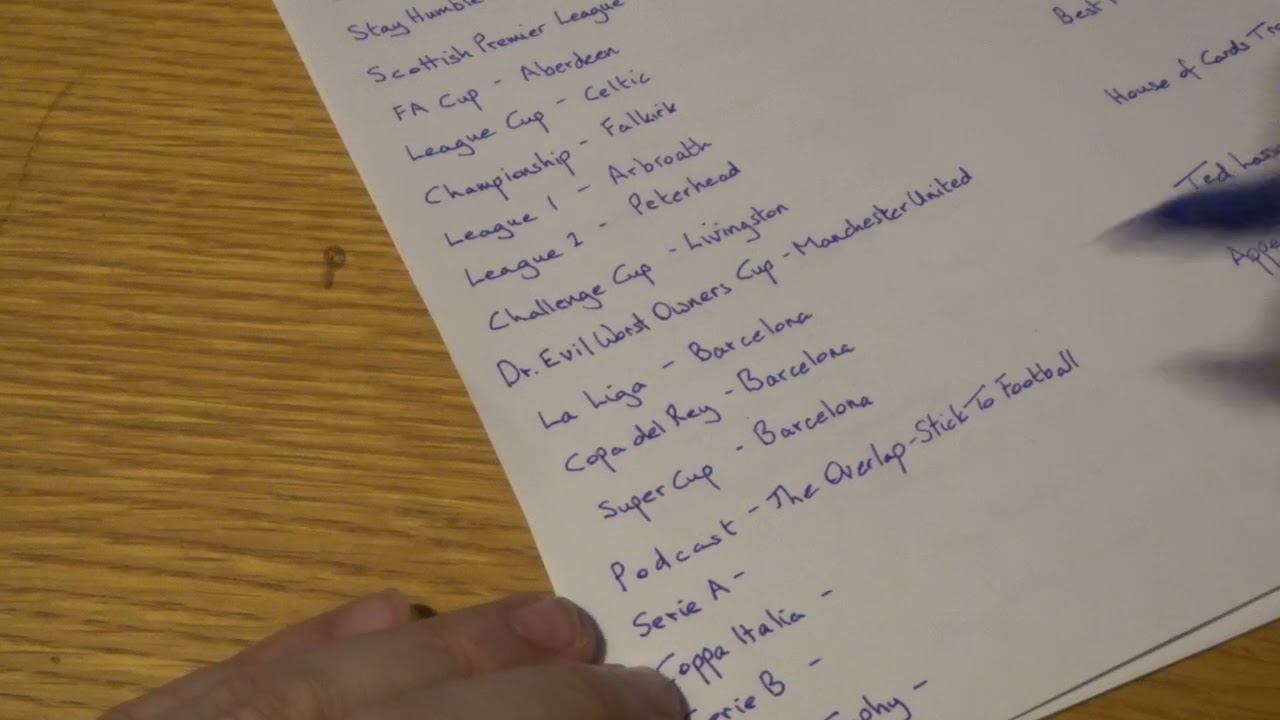 Stay Humble
Scottish Premier League
FA Cup - Aberdeen
League Cup - Celtic
Championship - Falkirk
League 1 - Arbroath
League 2 - Peterhead
Challenge Cup - Livingston
Dr. Evil Worst Owners Cup - Manchester United
La Liga - Barcelona
Copa del Rey - Barcelona
Super Cup - Barcelona
Podcast - The Overlap - Stick To Football
Serie A -
Coppa Italia -
Serie B -
Best
House of Cards
Ted